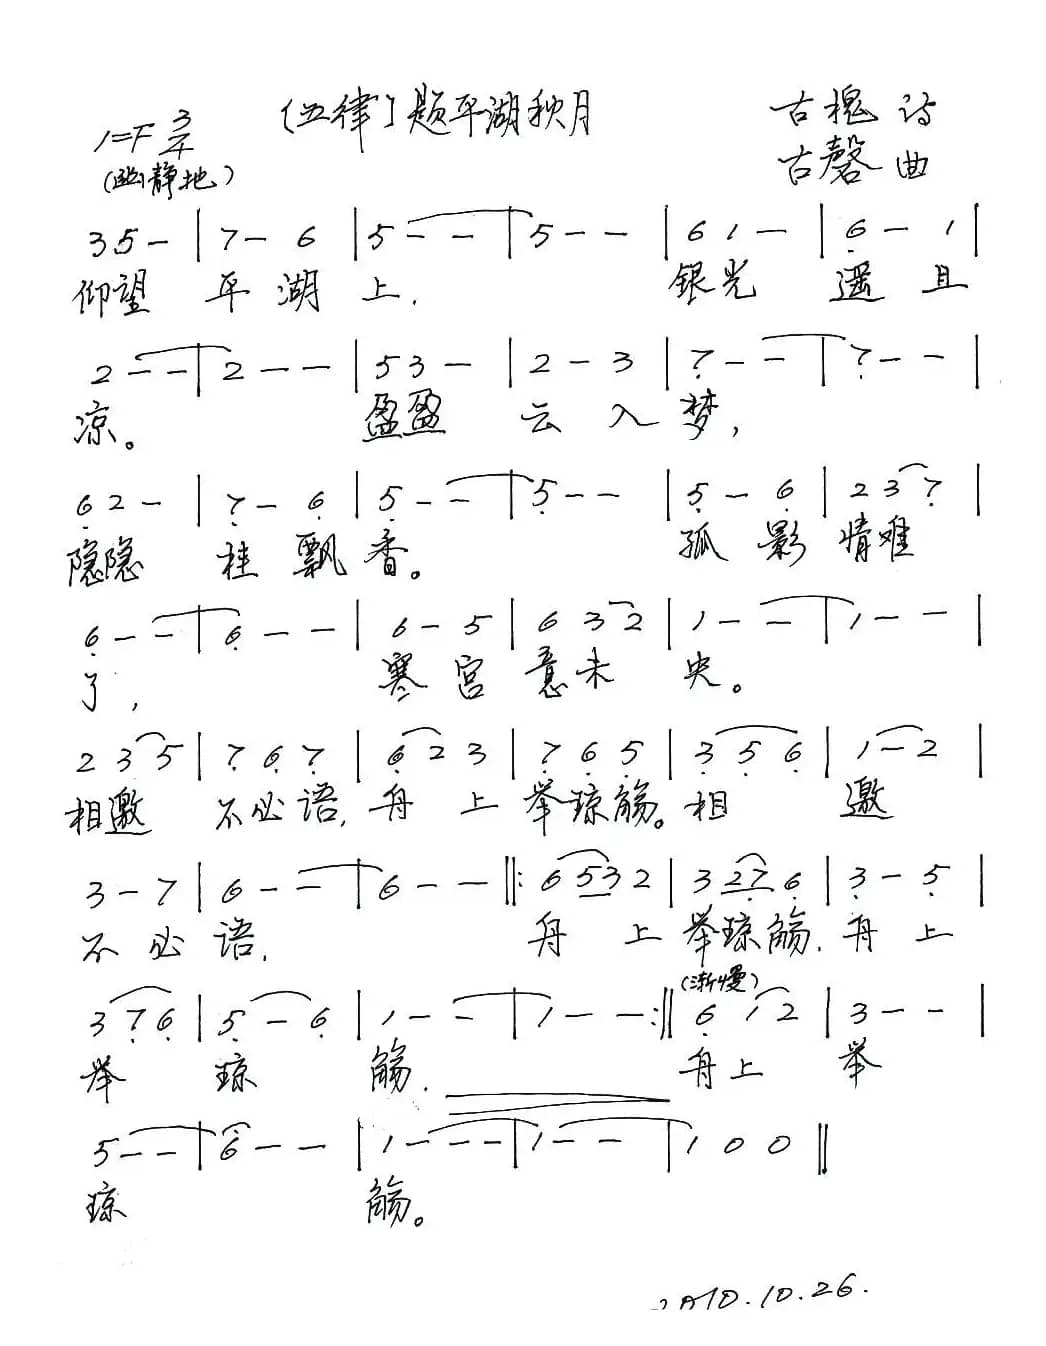 1=F 3/4 〔五律〕题平湖秋月 古槐 诗
(幽静地) 古磬 曲
3 5 - | 7 - 6 | 5 - - | 5 - - | 6 1 - | 6 - 1 |
仰望 平 湖 上, 银光 遥 且
2 - - | 2 - - | 5 3 - | 2 - 3 | 7 - - | 7 - - |
凉。 盈盈 云 入 梦,
6 2 - | 7 - 6 | 5 - - | 5 - - | 5 - 6 | 2 3 7 |
隐隐 桂 飘 香。 孤 影 情难
6 - - | 6 - - | 6 - 5 | 6 3 2 | 1 - - | 1 - - |
了, 寒 宫 意未 央。
2 3 5 | 7 6 7 | 6 2 3 | 7 6 5 | 3 5 6 | 1 - 2 |
相邀 不必语, 舟 上 举琼觞。相 邀
3 - 7 | 6 - - | 6 - - ‖: 6 5 3 2 | 3 2 7 6 | 3 - 5 |
不 必 语, 舟 上 举琼觞, 舟 上
(渐慢)
3 7 6 | 5 - 6 | 1 - - | 1 - - :‖ 6 1 2 | 3 - - |
举 琼 觞, 舟上 举
5 - - | 6 - - | 1 - - - | 1 - - | 1 0 0 ‖
琼 觞。
2010.10.26.